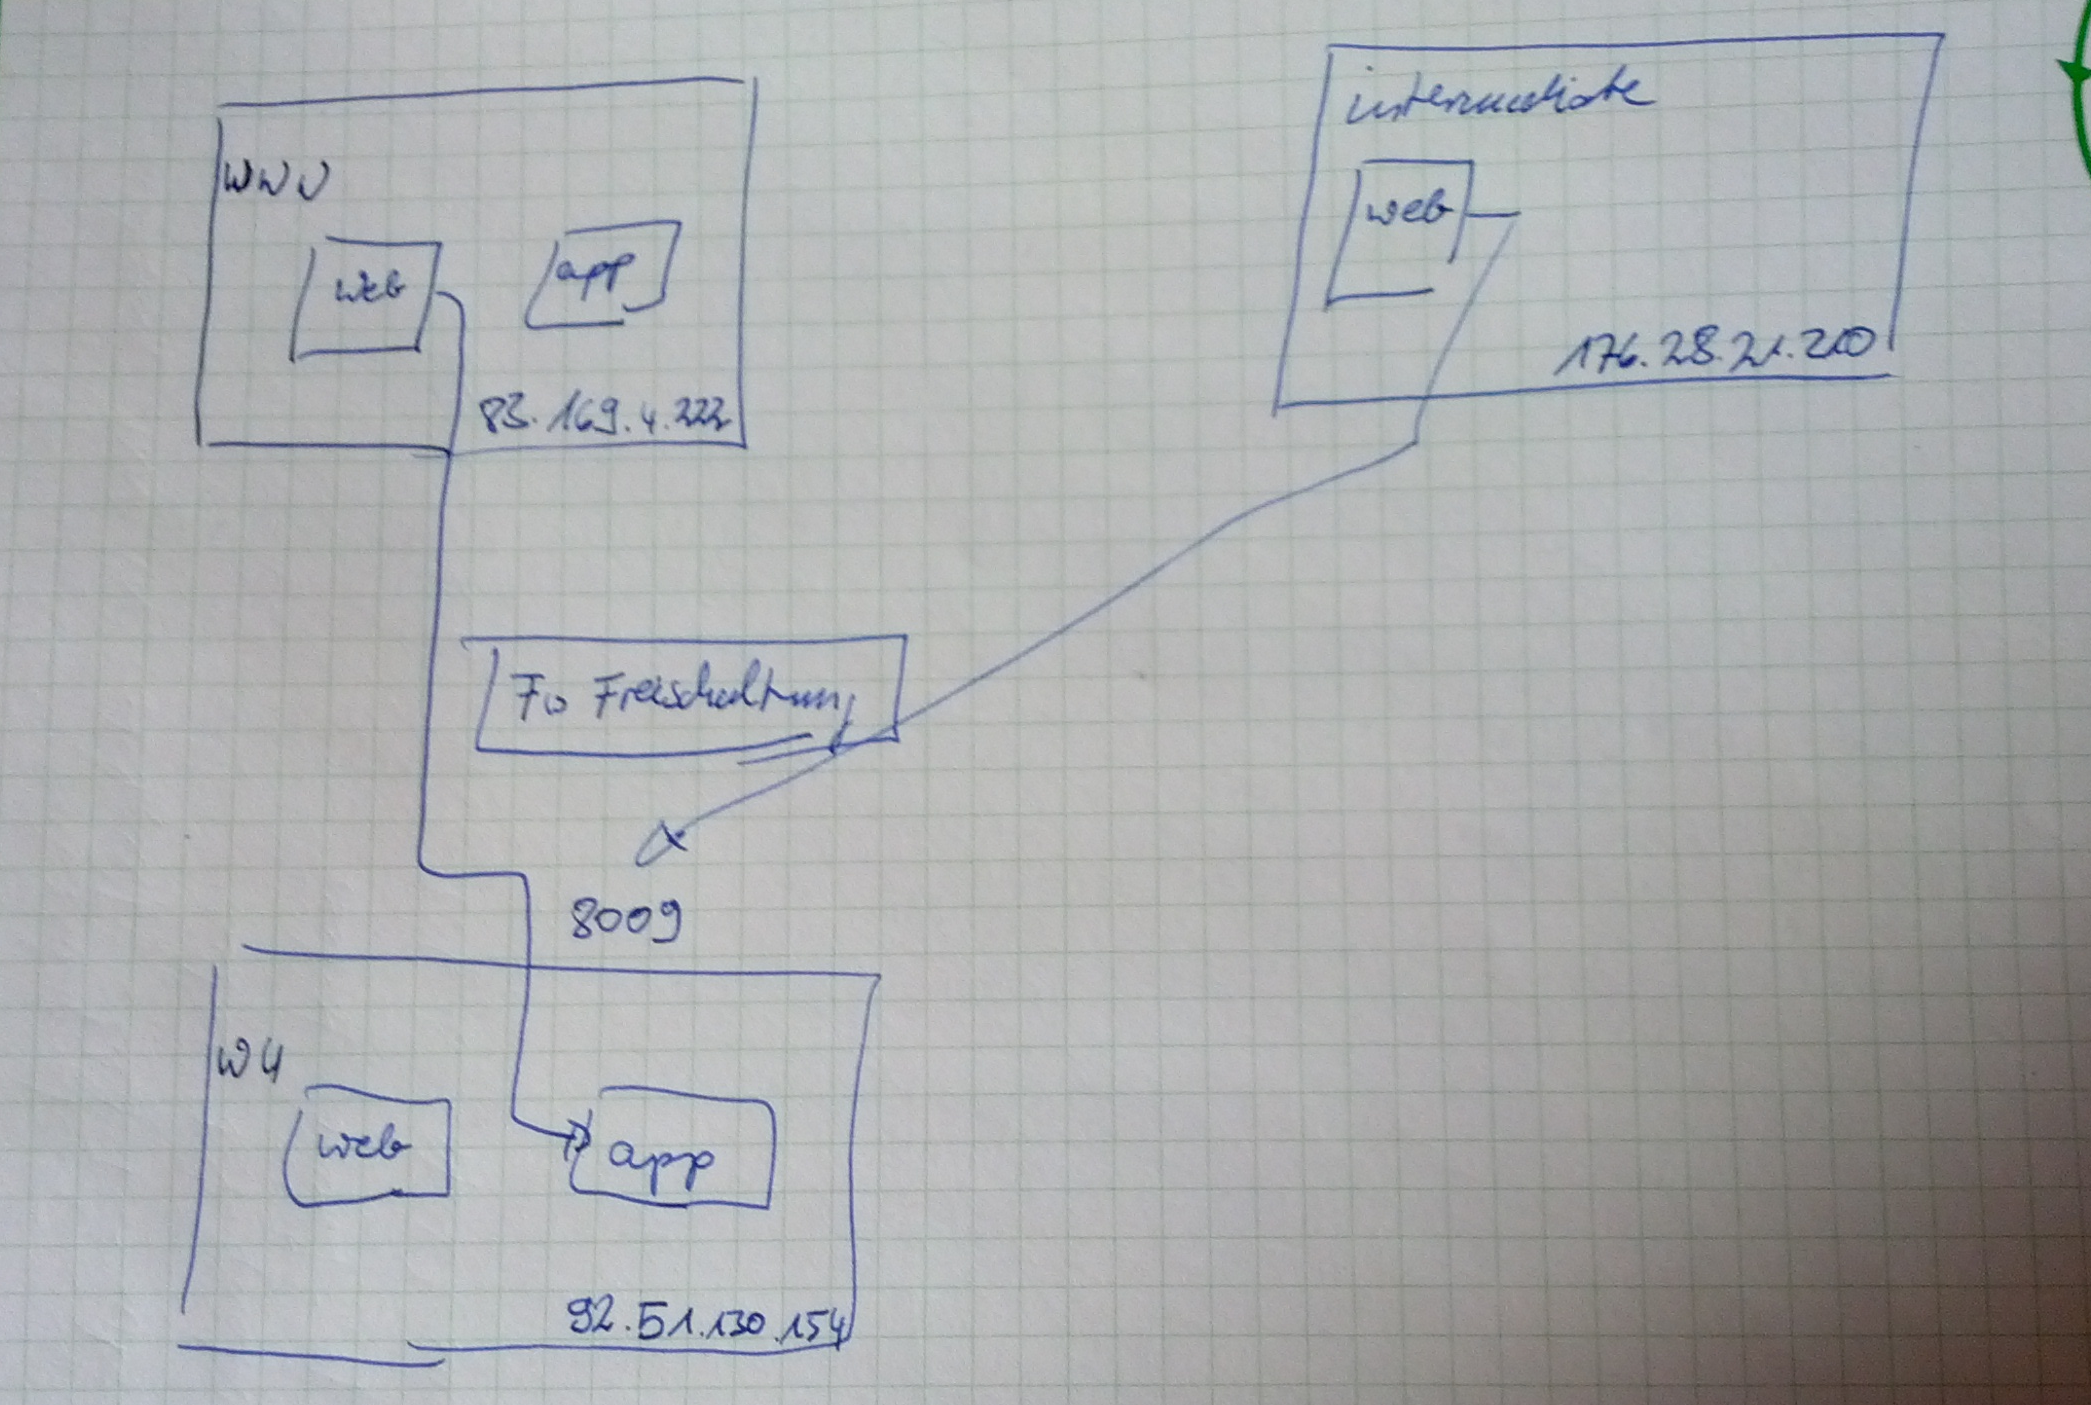 www
web
app
83.169.4.222
intermediate
web
176.28.21.210
Fw Freischaltung
8009
w4
web
app
92.51.130.154